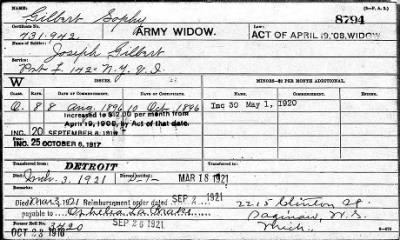 NAME: 8794 (3-P.A.S.)
Gilbert Sophy
Certificate No. ARMY WIDOW. ACT OF APRIL 19, '08, WIDOW
731.942.
Name of Soldier:
Joseph Gilbert
Service
Pvt L 142" N.Y. V.I.
W ISSUES. MINORS-$2 PER MONTH ADDITIONAL.
RATE DATE OF COMMENCEMENT DATE OF CERTIFICATE
O. 8 8 Aug. 1896 10 Oct 1896 Inc 30 May 1, 1920
Increased to $12.00 per month from
April 19, 1908, by Act of that date.
INC. 20 SEPTEMBER 8, 1916
INC. 25 OCTOBER 6, 1917
DETROIT
Transferred from Transferred to
Mch. 3. 1921 D-1- MAR 18 1921
Died Mar 3, 1921 Reimbursement order dated SEP 2 1921 2215 Clinton St.
payable to Ophelia La SEP 2 1921 Saginaw, W.S.
Former Roll No. 3420 Mich.
OCT 23 1916